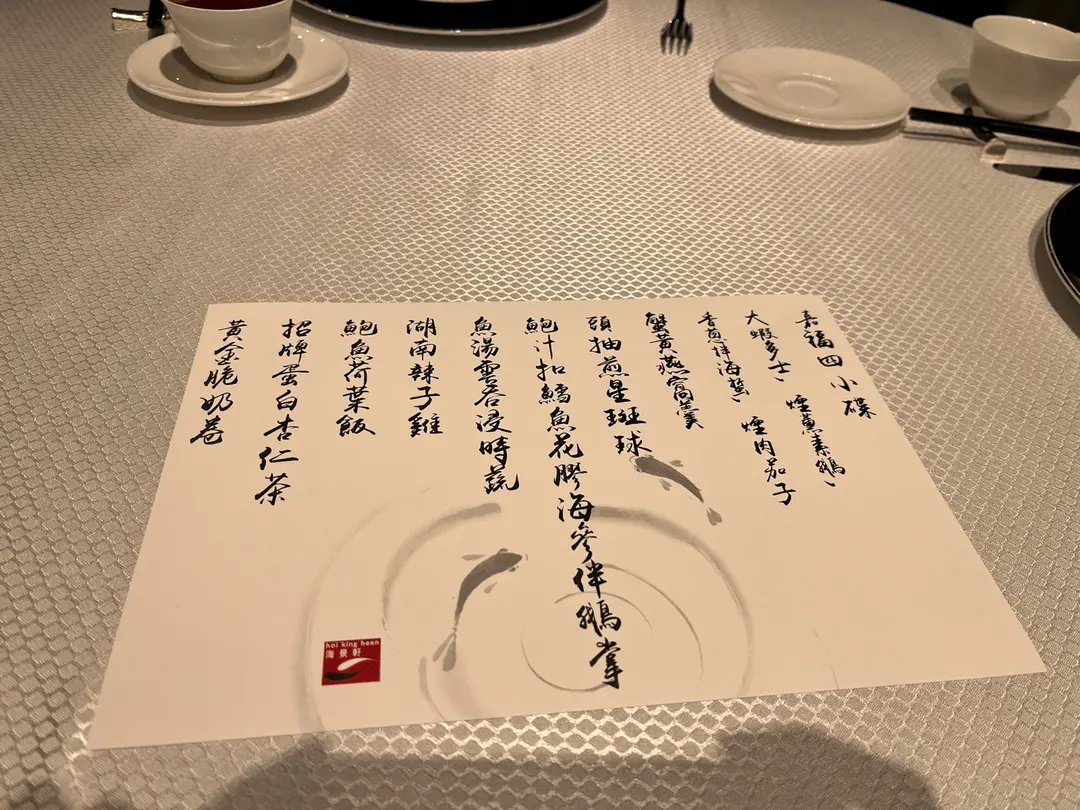 嘉福四小碟
大蝦多士、煙薰素鵝、
香蔥拌海蜇、煙肉茄子
蟹黃燕窩羹
頭抽煎星斑球
鮑汁扣鱈魚花膠海參伴鵝掌
魚湯雲吞浸時蔬
湖南辣子雞
鮑魚荷葉飯
招牌蛋白杏仁茶
黃金脆奶卷
hoi king heen
海景軒